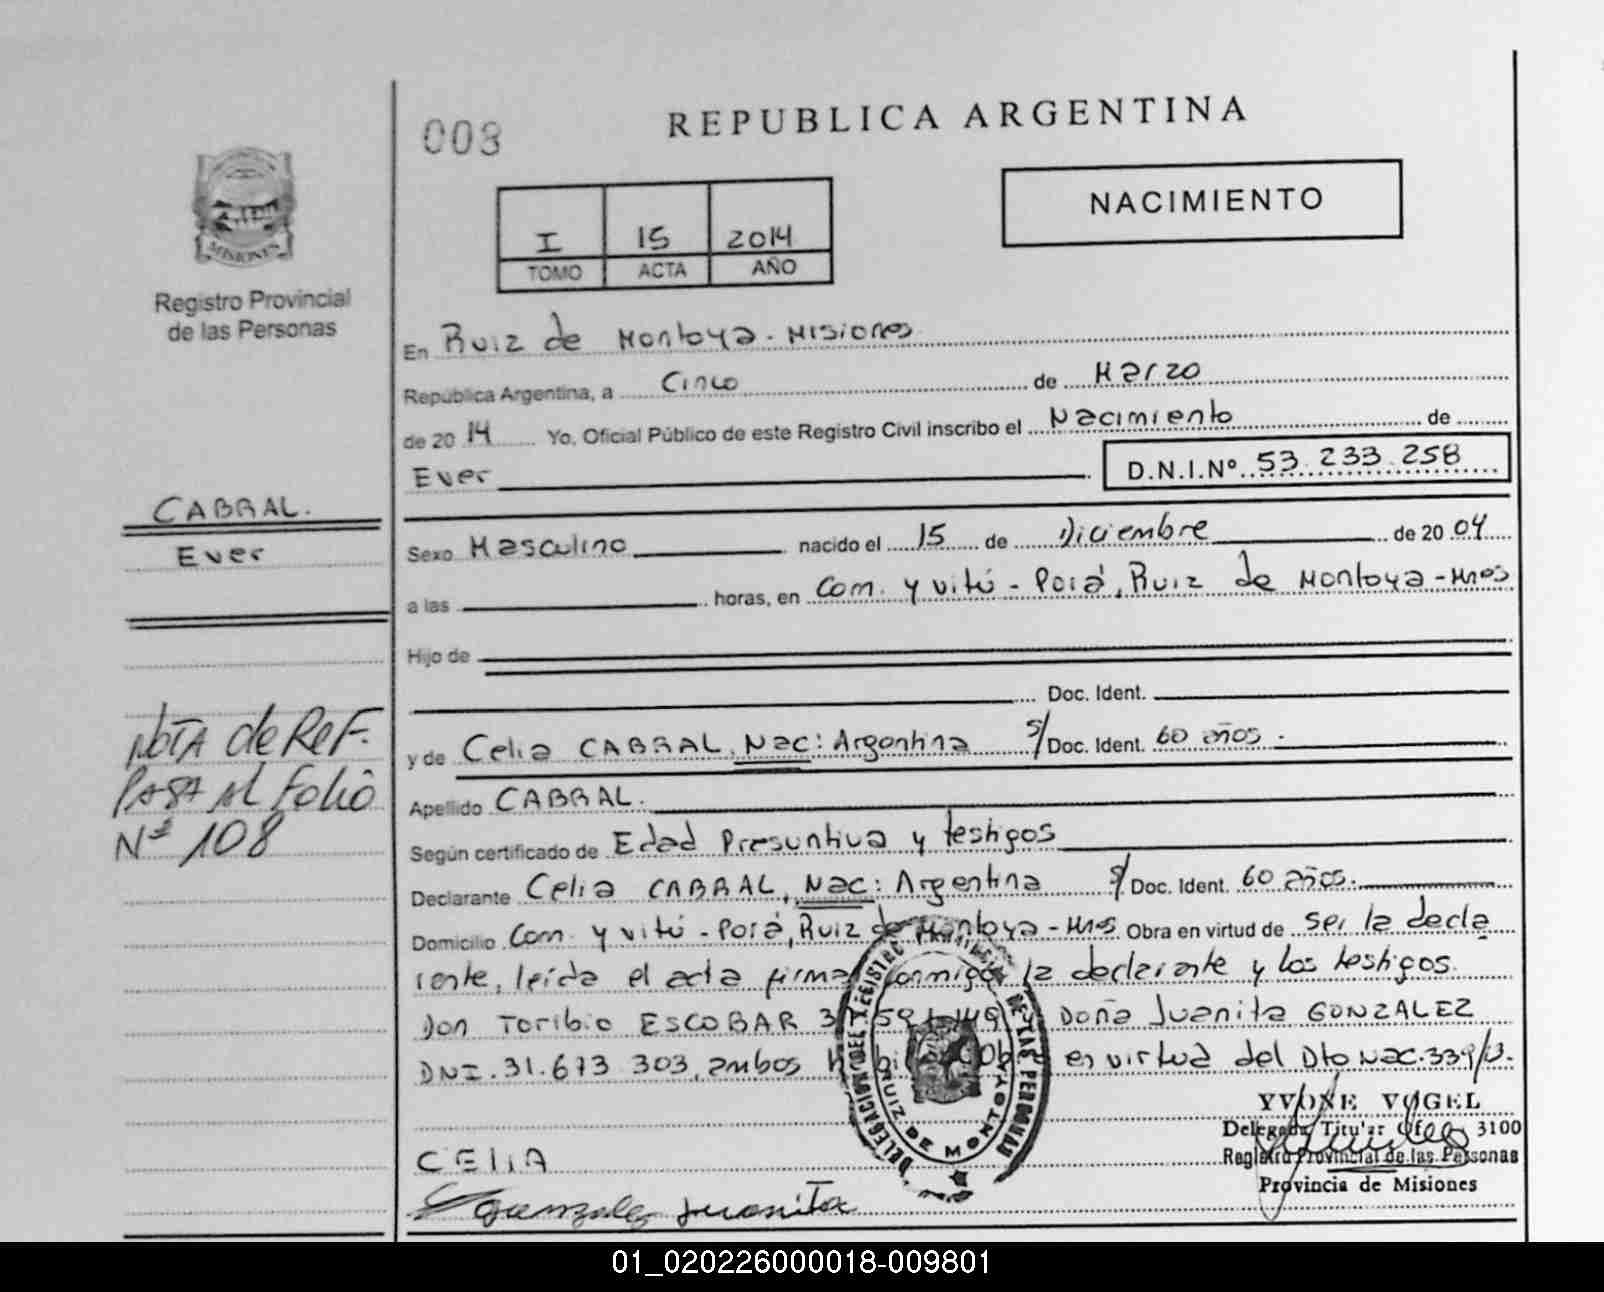 008
REPUBLICA ARGENTINA
NACIMIENTO
I 15 2014
TOMO ACTA AÑO
MISIONES
Registro Provincial
de las Personas
En Ruiz de Montoya - Misiones
República Argentina, a Cinco de Marzo
de 2014 Yo, Oficial Público de este Registro Civil inscribo el Nacimiento de
Ever D.N.I.Nº 53.233.258
CABRAL.
Ever
Sexo Masculino nacido el 15 de Diciembre de 2004
a las horas, en Com. Yvitú - Porá, Ruiz de Montoya - Mnes
Hijo de
Doc. Ident.
y de Celia CABRAL, Nac: Argentina s/ Doc. Ident. 60 años.
Apellido CABRAL.
Según certificado de Edad Presuntiva y testigos
Declarante Celia CABRAL, Nac: Argentina s/ Doc. Ident. 60 años.
Domicilio Com. Yvitú - Porá, Ruiz de Montoya - Mnes Obra en virtud de ser la decla
rante, leída el acta firma conmigo la declarante y los testigos.
Don Toribio ESCOBAR Doña Juanita GONZALEZ
DNI. 31.673 303, ambos en virtud del Dto Nac. 339/13.
NOTA de REF.
PASA Al Folio
Nº 108
DELEGACION DEL REGISTRO PROVINCIAL DE LAS PERSONAS
RUIZ DE MONTOYA
YVONE VOGEL
Delegada Titular Ofc. 3100
Registro Provincial de las Personas
Provincia de Misiones
CELIA
Gonzalez Juanita
01_020226000018-009801